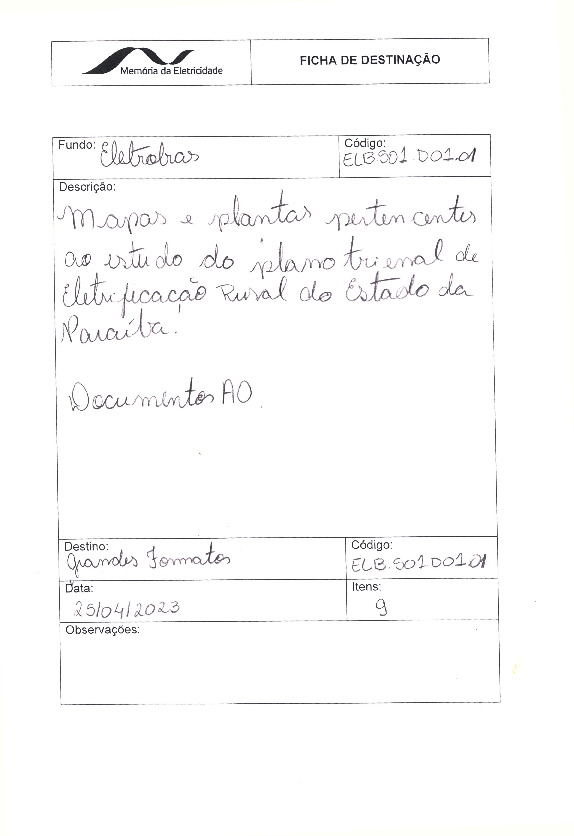 Memória da Eletricidade
FICHA DE DESTINAÇÃO
Fundo: Eletrobras
Código:
ELB S01.D01.01
Descrição:
Mapas e plantas pertencentes
ao estudo do plano trienal de
Eletrificação Rural do Estado da
Paraíba.
Documentos A0.
Destino:
Grandes Formatos
Código:
ELB.S01D01.01
Data:
25/04/2023
Itens:
9
Observações: